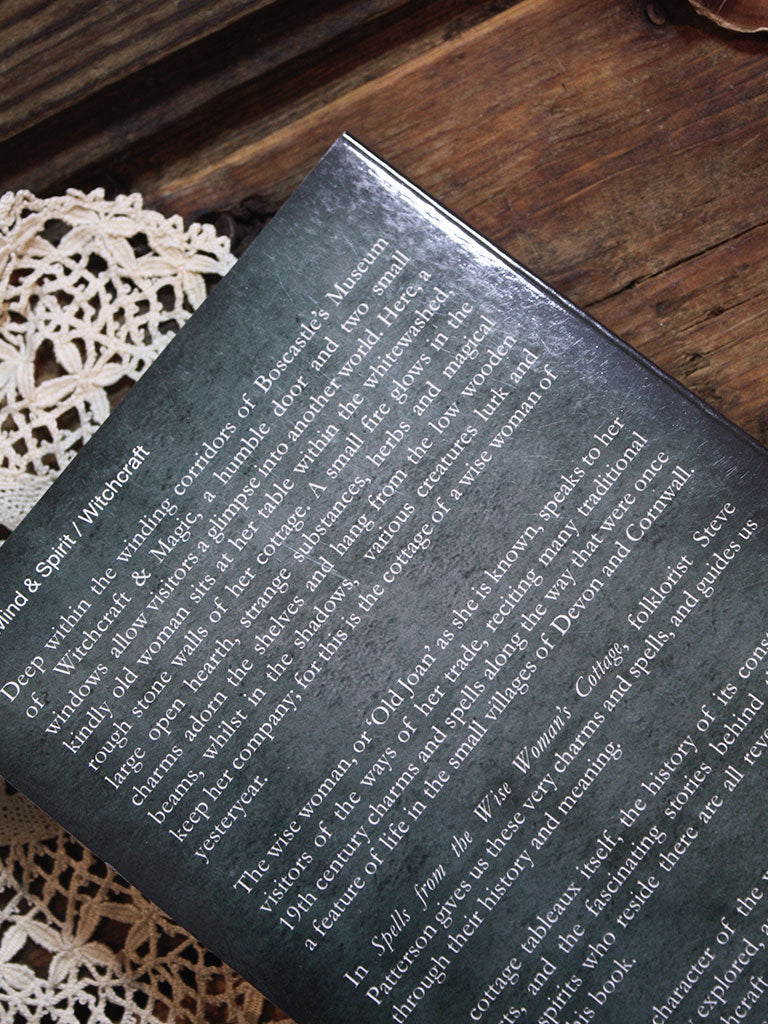 Mind & Spirit / Witchcraft
Deep within the winding corridors of Boscastle's Museum
of Witchcraft & Magic, a humble door and two small
windows allow visitors a glimpse into another world. Here, a
kindly old woman sits at her table within the whitewashed,
rough stone walls of her cottage. A small fire glows in the
large open hearth, strange substances, herbs and magical
charms adorn the shelves and hang from the low wooden
beams, whilst in the shadows, various creatures lurk and
keep her company; for this is the cottage of a wise woman of
yesteryear.
The wise woman, or 'Old Joan' as she is known, speaks to her
visitors of the ways of her trade, reciting many traditional
19th century charms and spells along the way that were once
a feature of life in the small villages of Devon and Cornwall.
In Spells from the Wise Woman's Cottage, folklorist Steve
Patterson gives us these very charms and spells, and guides us
through their history and meaning.
cottage tableaux itself, the history of its
and the fascinating stories behind
spirits who reside there are all
his book.
character of the
explored,